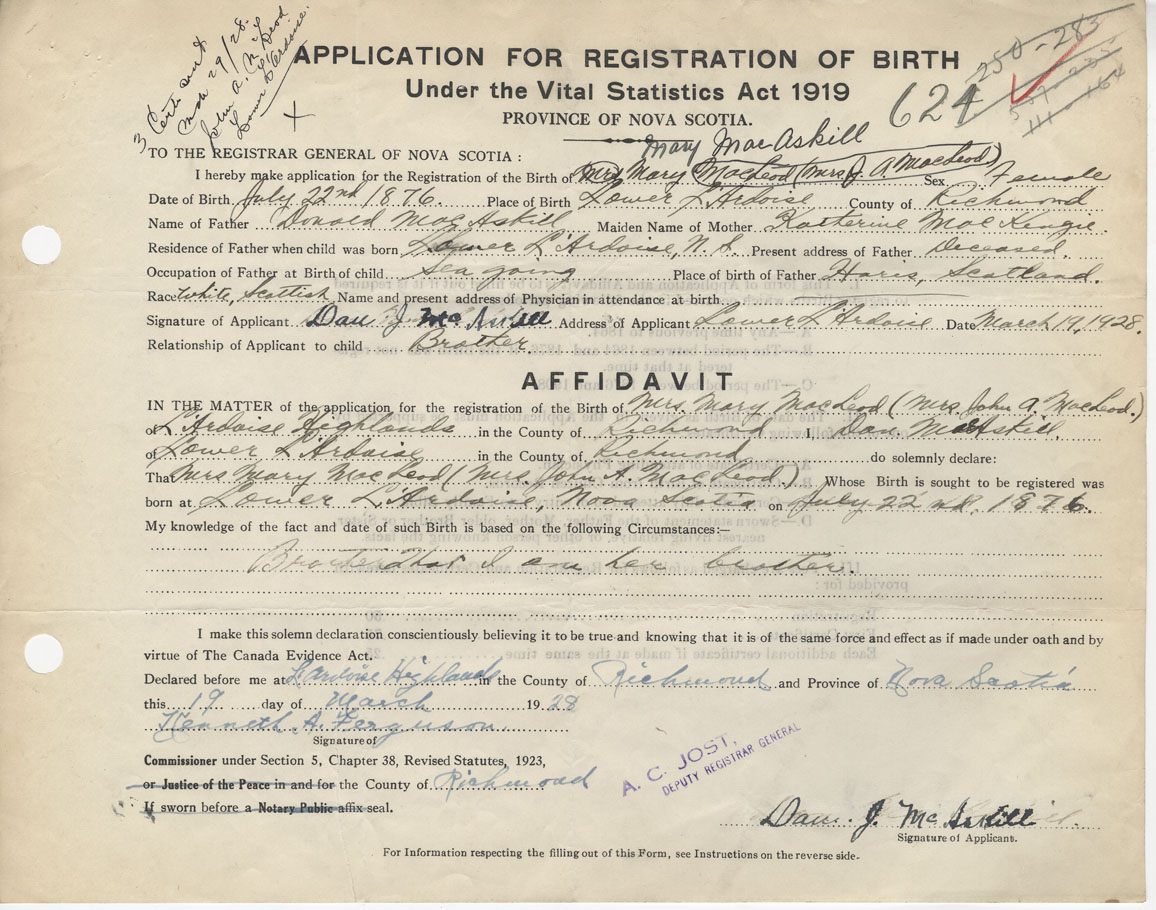 3 Certs sent
Mch 29/28.
John A. McLeod
Lower L'Ardoise.
X
250-283
624
111-164
APPLICATION FOR REGISTRATION OF BIRTH
Under the Vital Statistics Act 1919
PROVINCE OF NOVA SCOTIA.
Mary MacAskill
TO THE REGISTRAR GENERAL OF NOVA SCOTIA :
I hereby make application for the Registration of the Birth of Mrs Mary MacLeod (Mrs. J. A. MacLeod) Sex Female
Date of Birth July 22nd 1876. Place of Birth Lower L'Ardoise County of Richmond
Name of Father Donald MacAskill Maiden Name of Mother Katherine MacKenzie.
Residence of Father when child was born Lower L'Ardoise, N. S. Present address of Father Deceased.
Occupation of Father at Birth of child Sea going Place of birth of Father Haris, Scotland.
Race White, Scottish Name and present address of Physician in attendance at birth
Signature of Applicant Dan J McAskill Address of Applicant Lower L'Ardoise Date March 19, 1928.
Relationship of Applicant to child Brother.
AFFIDAVIT
IN THE MATTER of the application for the registration of the Birth of Mrs. Mary MacLeod (Mrs John A MacLeod.)
of L'Ardoise Highlands in the County of Richmond I, Dan MacAskill.
of Lower L'Ardoise in the County of Richmond do solemnly declare:
That Mrs Mary MacLeod (Mrs. John A MacLeod) Whose Birth is sought to be registered was
born at Lower L'Ardoise, Nova Scotia on July 22nd. 1876.
My knowledge of the fact and date of such Birth is based on the following Circumstances:—
Brother That I am her brother.
I make this solemn declaration conscientiously believing it to be true and knowing that it is of the same force and effect as if made under oath and by
virtue of The Canada Evidence Act.
Declared before me at L'Ardoise Highlands in the County of Richmond and Province of Nova Scotia
this 19 day of March 1928
Kenneth A. Ferguson
Signature of
Commissioner under Section 5, Chapter 38, Revised Statutes, 1923,
or Justice of the Peace in and for the County of Richmond
If sworn before a Notary Public affix seal.
A. C. JOST,
DEPUTY REGISTRAR GENERAL
Dan. J. McAskill
Signature of Applicant.
For Information respecting the filling out of this Form, see Instructions on the reverse side.